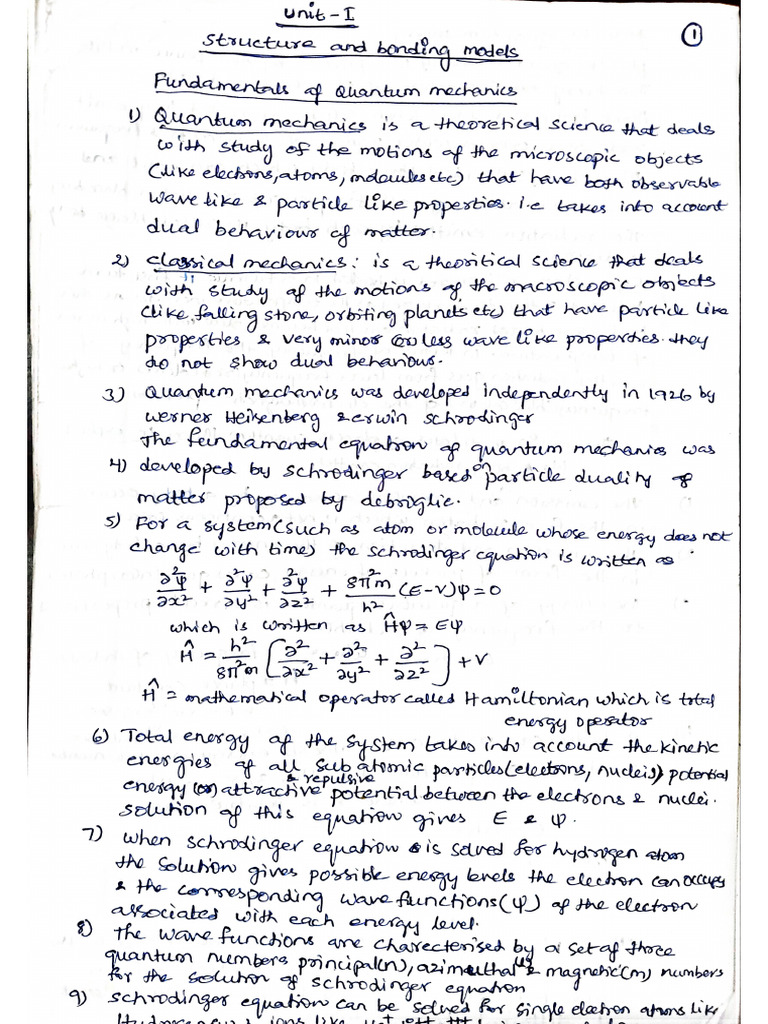 Unit-I
①
Structure and bonding models
Fundamentals of Quantum mechanics
1) Quantum mechanics is a theoretical science that deals
with study of the motions of the microscopic objects
(like electrons, atoms, molecules etc) that have both observable
wave like & particle like properties. i.e takes into account
dual behaviour of matter.
2) classical mechanics: is a theoritical science that deals
with study of the motions of the macroscopic objects
(like falling stone, orbiting planets etc) that have particle like
properties & very minor (or) less wave like properties. they
do not show dual behaviour.
3) Quantum mechanics was developed independently in 1926 by
werner Heisenberg & erwin schrodinger
The feindamental equation of quantum mechanics was
4) developed by schrodinger based on particle duality of
matter proposed by debriglie.
5) For a system (such as atom or molecule whose energy does not
change with time) the schrodinger equation is written as
∂²ψ/∂x² + ∂²ψ/∂y² + ∂²ψ/∂z² + 8π²m/h² (E-V)ψ=0
which is written as Ĥψ = Eψ
Ĥ = h²/8π²m [∂²/∂x² + ∂²/∂y² + ∂²/∂z²] + V
Ĥ = mathematical operator called Hamiltonian which is total
energy operator
6) Total energy of the system takes into account the kinetic
energies of all sub atomic particles (electrons, nucleis) potential
energy (or) attractive & repulsive potential between the electrons & nuclei.
solution of this equation gives E & ψ.
7) when schrodinger equation is solved for hydrogen atom
the solution gives possible energy levels the electron can occupy
& the corresponding wave functions (ψ) of the electron
associated with each energy level.
8) the wave functions are charecterised by a set of three
quantum numbers principal(n), azimuthal & magnetic(m) numbers
for the solution of schrodinger equation
9) schrodinger equation can be solved for single electron atoms like